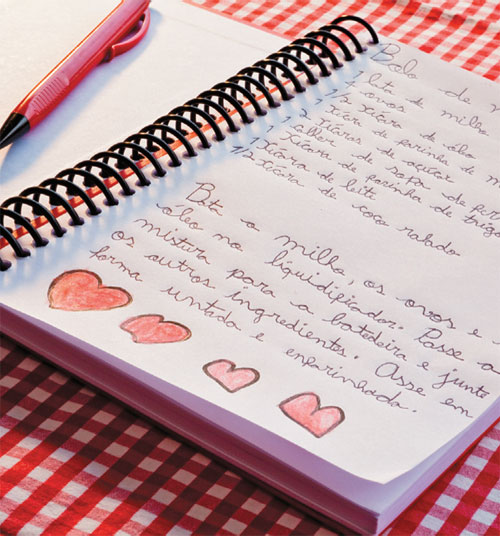 Bolo de
lata de milho
ovos
1/2 xícara de óleo
xícara de farinha de m
2 xícaras de açúcar
colher de sopa de
xícara de farinha de trigo
xícara de leite
1/2 xícara de coco ralado
Bta a milho, os ovos e
óleo no liquidificador. Passe a
mistura para a batedeira e junte
os outros ingredientes. Asse em
forma untada e enfarinhada.